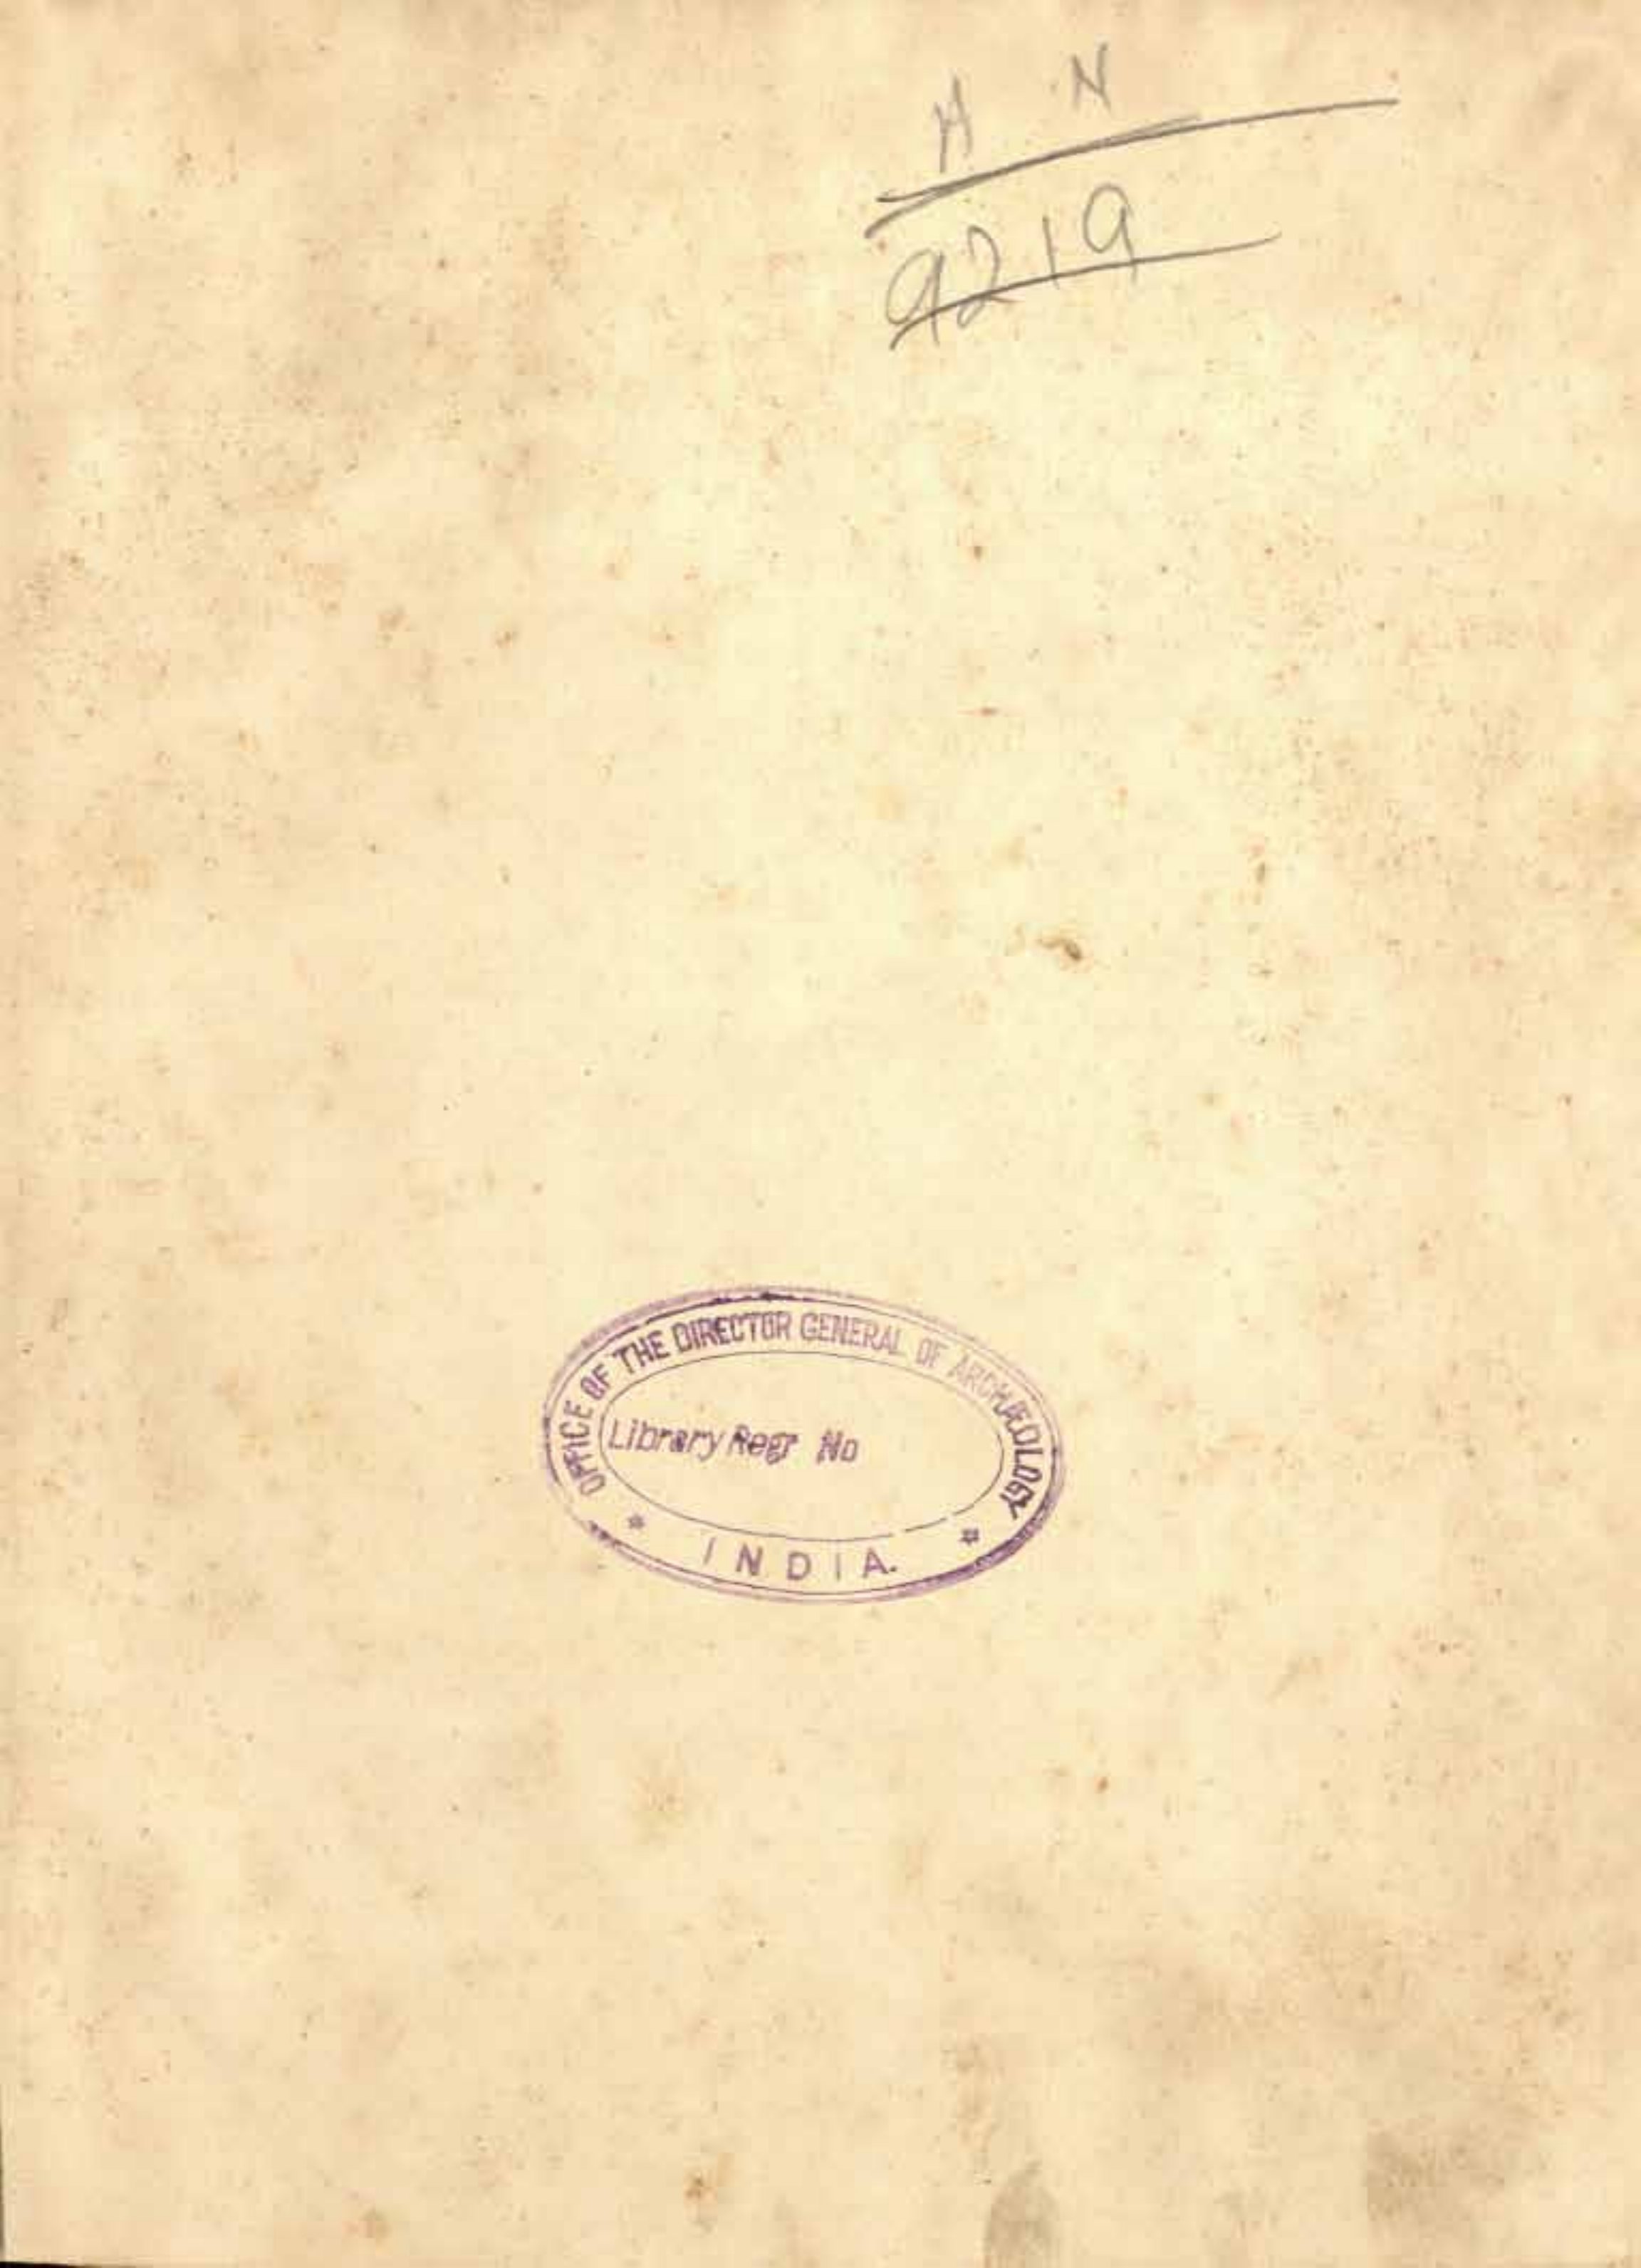 A N
9219
OFFICE OF THE DIRECTOR GENERAL OF ARCHÆOLOGY
Library Regr No
* INDIA. *